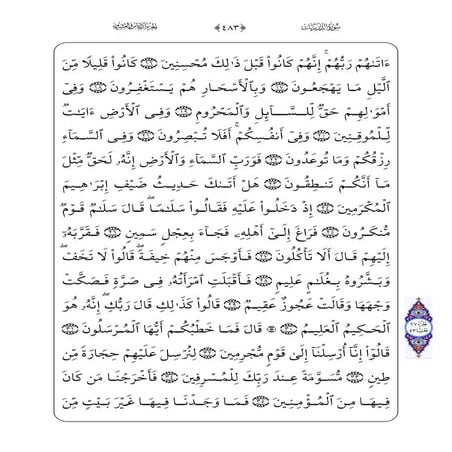 سُورَةُ الذَّارِيَاتِ
﴿٤٨٣﴾
ءَاتَىٰهُمْ رَبُّهُمْۚ إِنَّهُمْ كَانُوا۟ قَبْلَ ذَٰلِكَ مُحْسِنِينَ كَانُوا۟ قَلِيلًا مِّنَ
ٱلَّيْلِ مَا يَهْجَعُونَ وَبِٱلْأَسْحَارِ هُمْ يَسْتَغْفِرُونَ وَفِىٓ
أَمْوَٰلِهِمْ حَقٌّ لِّلسَّآئِلِ وَٱلْمَحْرُومِ وَفِى ٱلْأَرْضِ ءَايَٰتٌ
لِّلْمُوقِنِينَ وَفِىٓ أَنفُسِكُمْۚ أَفَلَا تُبْصِرُونَ وَفِى ٱلسَّمَآءِ
رِزْقُكُمْ وَمَا تُوعَدُونَ فَوَرَبِّ ٱلسَّمَآءِ وَٱلْأَرْضِ إِنَّهُۥ لَحَقٌّ مِّثْلَ
مَآ أَنَّكُمْ تَنطِقُونَ هَلْ أَتَىٰكَ حَدِيثُ ضَيْفِ إِبْرَٰهِيمَ
ٱلْمُكْرَمِينَ إِذْ دَخَلُوا۟ عَلَيْهِ فَقَالُوا۟ سَلَٰمًاۖ قَالَ سَلَٰمٌ قَوْمٌ
مُّنكَرُونَ فَرَاغَ إِلَىٰٓ أَهْلِهِۦ فَجَآءَ بِعِجْلٍ سَمِينٍ فَقَرَّبَهُۥٓ
إِلَيْهِمْ قَالَ أَلَا تَأْكُلُونَ فَأَوْجَسَ مِنْهُمْ خِيفَةًۖ قَالُوا۟ لَا تَخَفْۖ
وَبَشَّرُوهُ بِغُلَٰمٍ عَلِيمٍ فَأَقْبَلَتِ ٱمْرَأَتُهُۥ فِى صَرَّةٍ فَصَكَّتْ
وَجْهَهَا وَقَالَتْ عَجُوزٌ عَقِيمٌ قَالُوا۟ كَذَٰلِكِ قَالَ رَبُّكِۖ إِنَّهُۥ هُوَ
ٱلْحَكِيمُ ٱلْعَلِيمُ ۞ قَالَ فَمَا خَطْبُكُمْ أَيُّهَا ٱلْمُرْسَلُونَ
قَالُوٓا۟ إِنَّآ أُرْسِلْنَآ إِلَىٰ قَوْمٍ مُّجْرِمِينَ لِنُرْسِلَ عَلَيْهِمْ حِجَارَةً مِّن
طِينٍ مُّسَوَّمَةً عِندَ رَبِّكَ لِلْمُسْرِفِينَ فَأَخْرَجْنَا مَن كَانَ
فِيهَا مِنَ ٱلْمُؤْمِنِينَ فَمَا وَجَدْنَا فِيهَا غَيْرَ بَيْتٍ مِّنَ